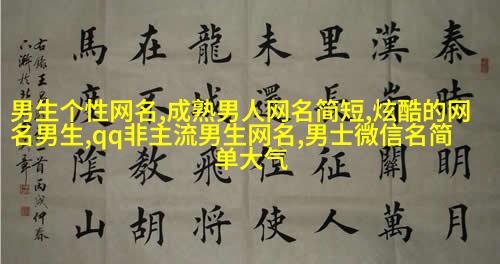 男生个性网名,成熟男人网名简短,炫酷的网
名男生,qq非主流男生网名,男士微信名简
单大气
秦時眀月
漢關萬
里長征人
未還但使
龍城飛將
在不教胡
馬度陰山
右錄王
首丙戌仲春